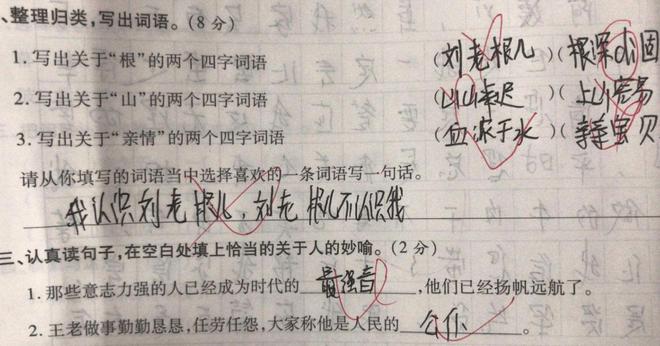 、整理归类,写出词语。(8分)
1. 写出关于“根”的两个四字词语 (刘老根儿)(根深di固
2. 写出关于“山”的两个四字词语 (山山来迟)(上山容易
3. 写出关于“亲情”的两个四字词语 (血浓于水)(亲亲宝贝
请从你填写的词语当中选择喜欢的一条词语写一句话。
我认识刘老根儿,刘老根儿不认识我
三、认真读句子,在空白处填上恰当的关于人的妙喻。(2分)
1. 那些意志力强的人已经成为时代的 最强音 ,他们已经扬帆远航了。
2. 王老做事勤勤恳恳,任劳任怨,大家称他是人民的 公仆 。